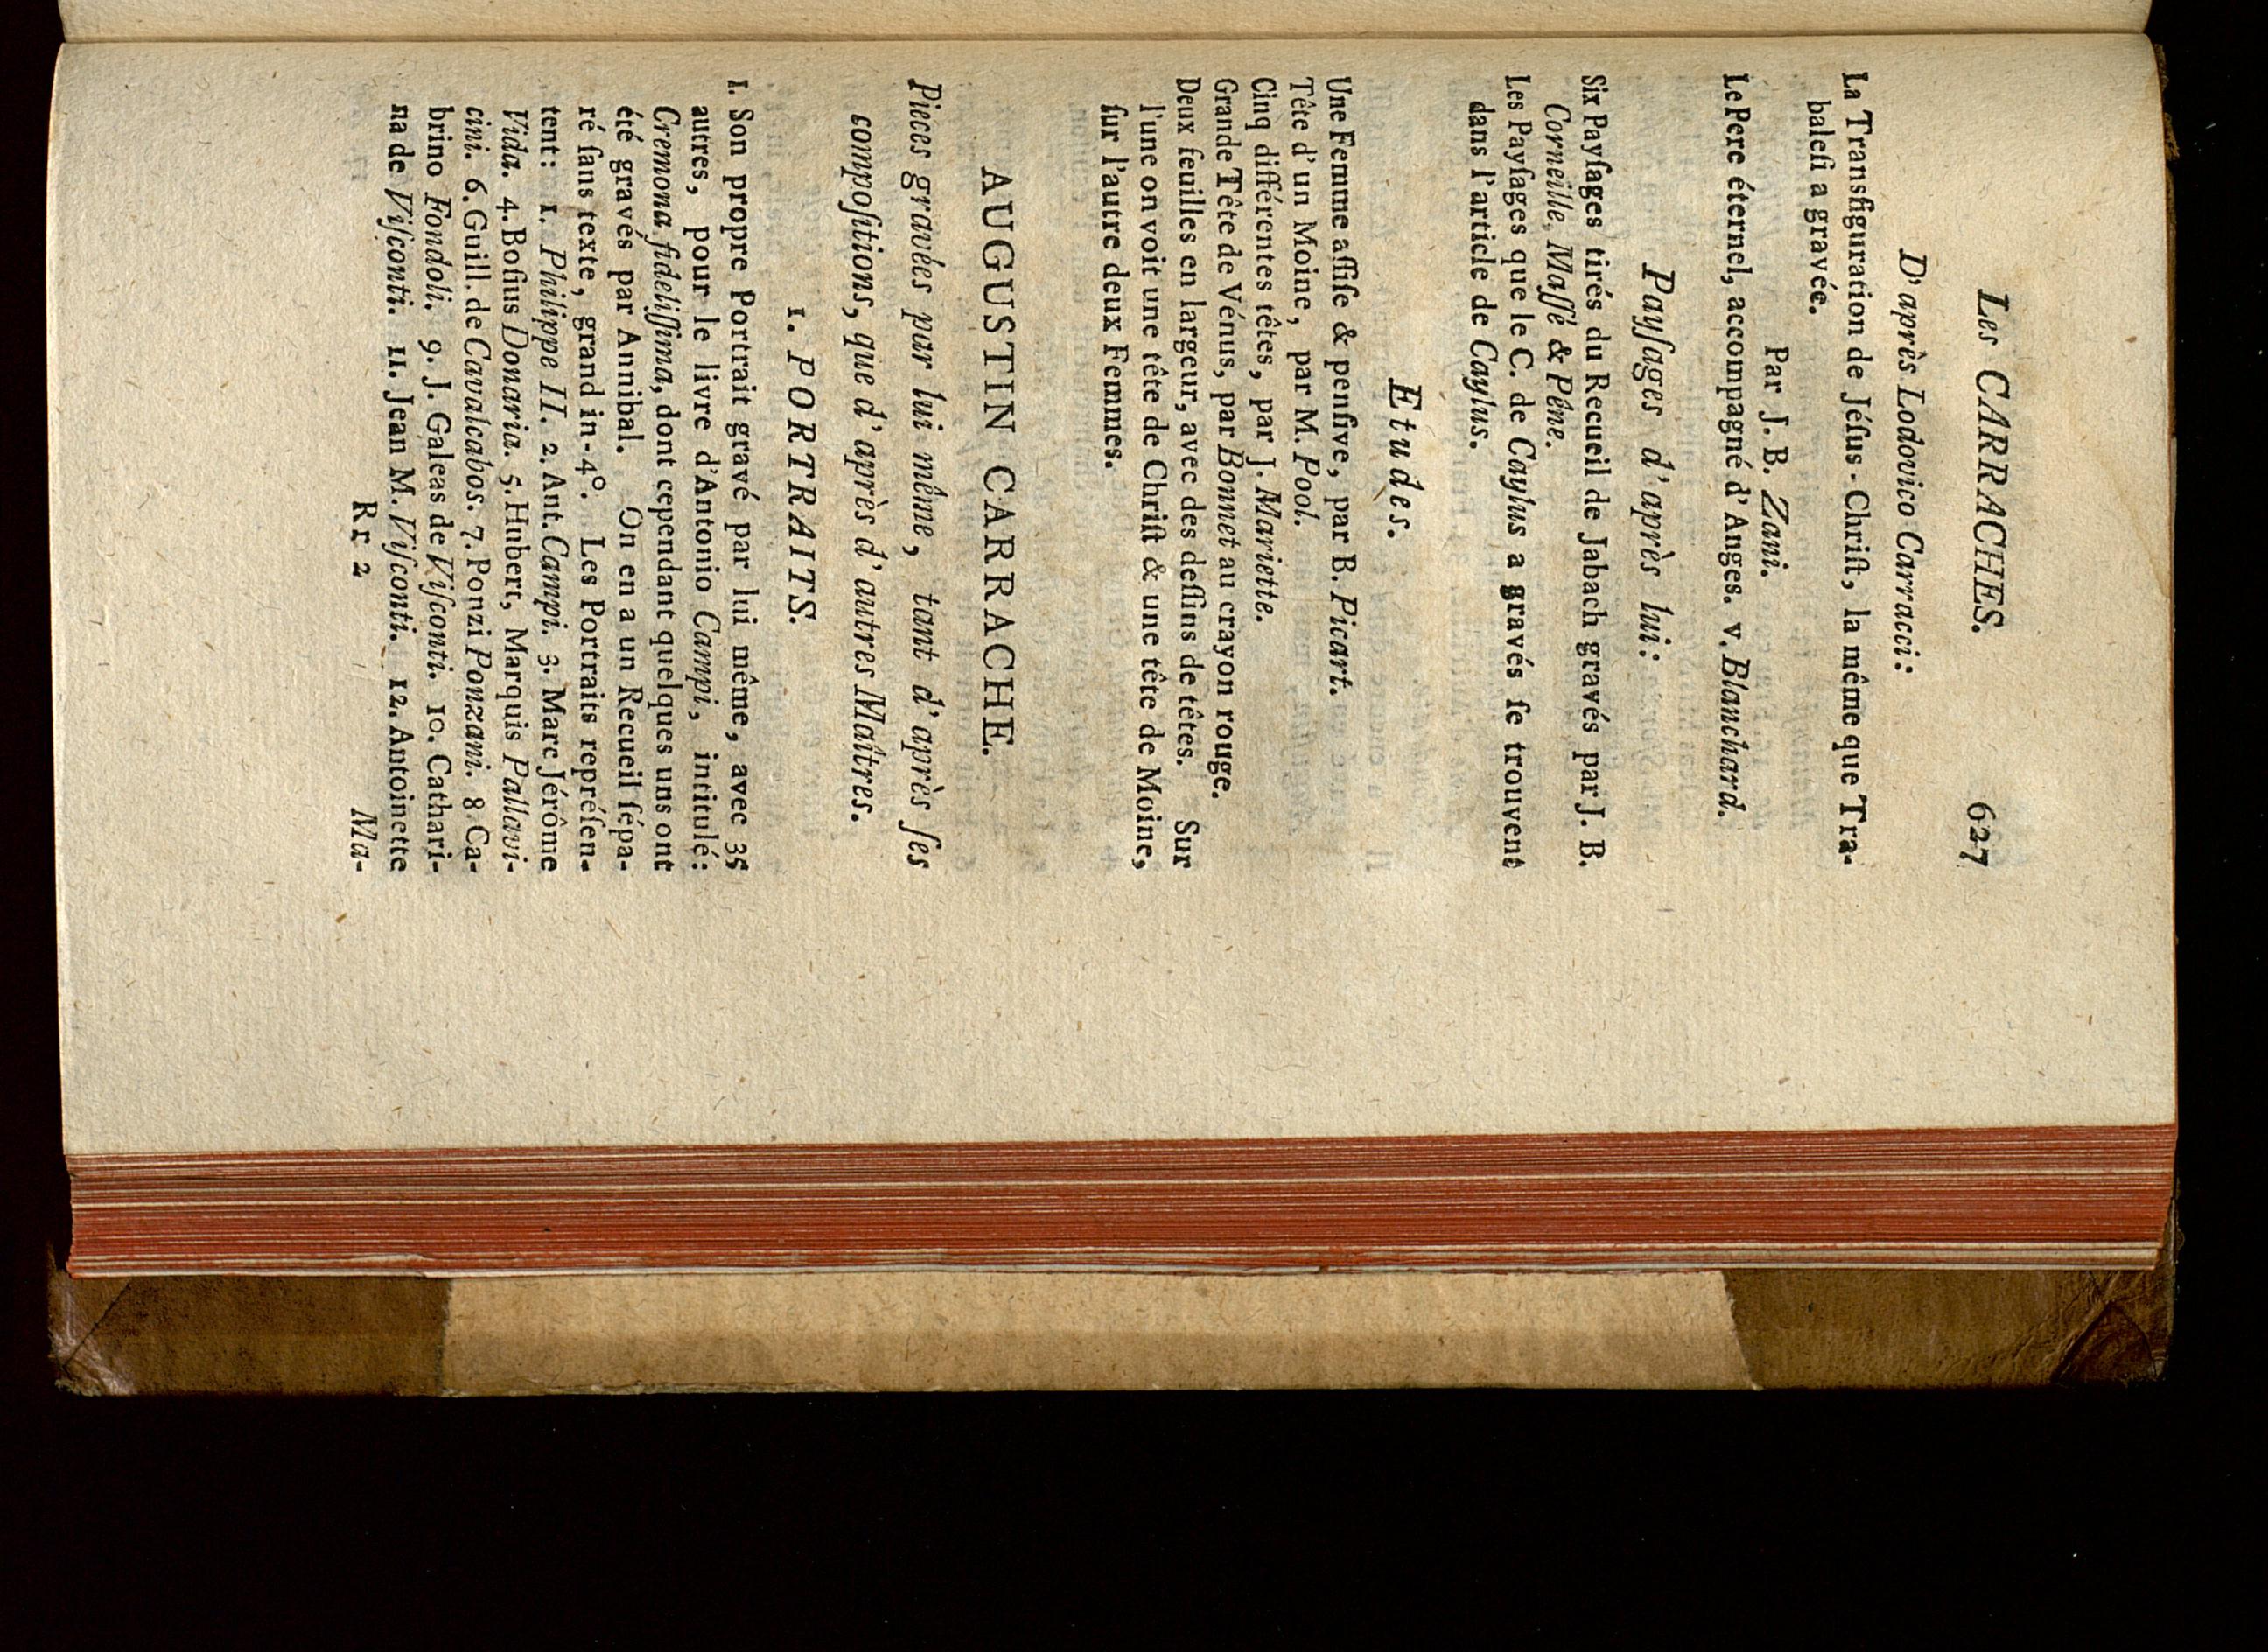 Les CARRACHES. 627
D'après Lodovico Carracci:
La Transfiguration de Jéſus-Chriſt, la même que Tra-
baleſi a gravée.
Par J. B. Zani.
Le Pere éternel, accompagné d'Anges. v. Blanchard.
Payſages d'après lui:
Six Payſages tirés du Recueil de Jabach gravés par J. B.
Corneille, Maſſé & Pêne.
Les Payſages que le C. de Caylus a gravés ſe trouvent
dans l'article de Caylus.
Etudes.
Une Femme aſſiſe & penſive, par B. Picart.
Tête d'un Moine, par M. Pool.
Cinq différentes têtes, par J. Mariette.
Grande Tête de Vénus, par Bonnet au crayon rouge.
Deux feuilles en largeur, avec des deſſins de têtes. Sur
l'une on voit une tête de Chriſt & une tête de Moine,
ſur l'autre deux Femmes.
AUGUSTIN CARRACHE.
Pieces gravées par lui même, tant d'après ſes
compoſitions, que d'après d'autres Maîtres.
1. PORTRAITS.
1. Son propre Portrait gravé par lui même, avec 35
autres, pour le livre d'Antonio Campi, intitulé:
Cremona fideliſſima, dont cependant quelques uns ont
été gravés par Annibal. On en a un Recueil ſépa-
ré ſans texte, grand in-4°. Les Portraits repréſen-
tent: 1. Philippe II. 2. Ant. Campi. 3. Marc Jérôme
Vida. 4. Boſius Donaria. 5. Hubert, Marquis Pallavi-
cini. 6. Guill. de Cavalcabos. 7. Ponzi Ponzani. 8. Ca-
brino Fondoli. 9. J. Galeas de Viſconti. 10. Cathari-
na de Viſconti. 11. Jean M. Viſconti. 12. Antoinette
Rr 2 Ma-